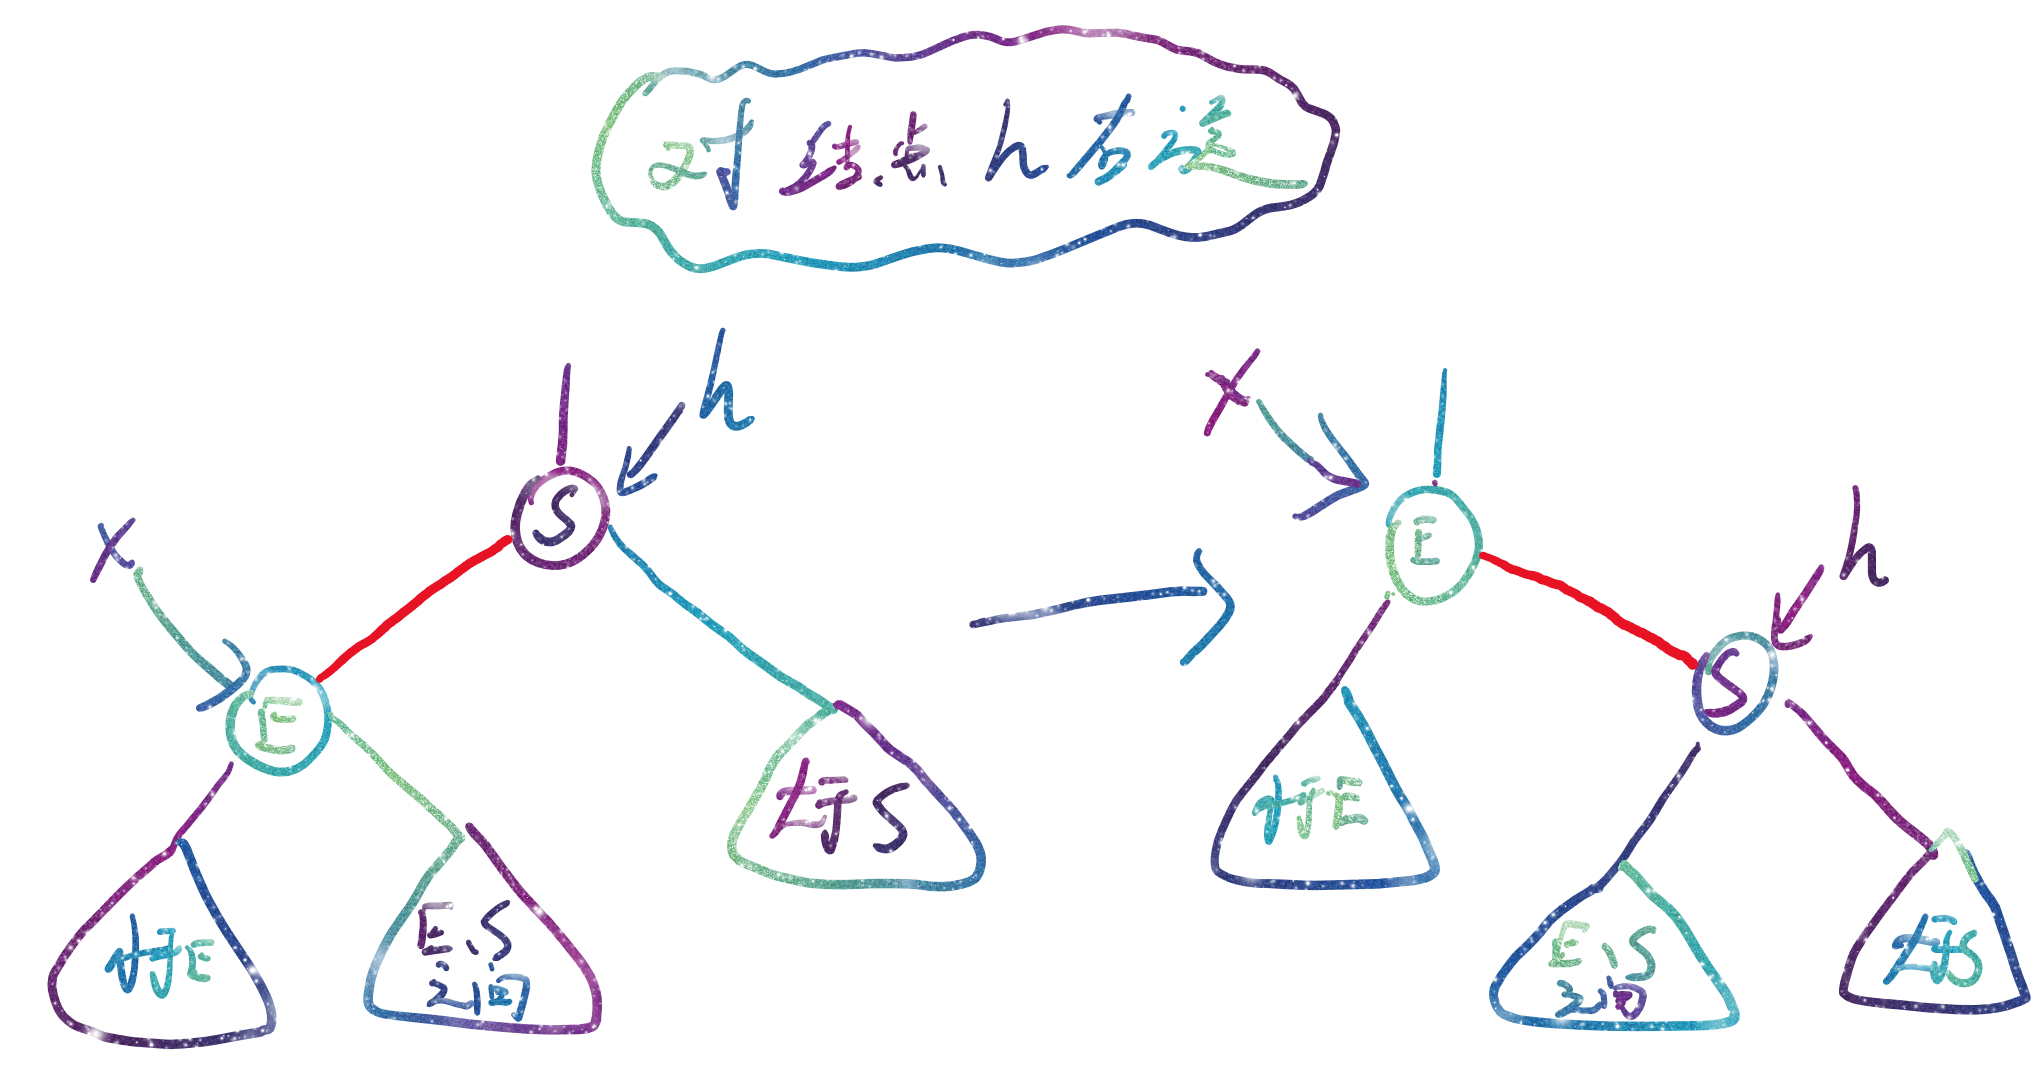 对结点h右旋
h
S
x
E
小于E
E、S
之间
大于S
x
E
h
S
小于E
E、S
之间
大于S